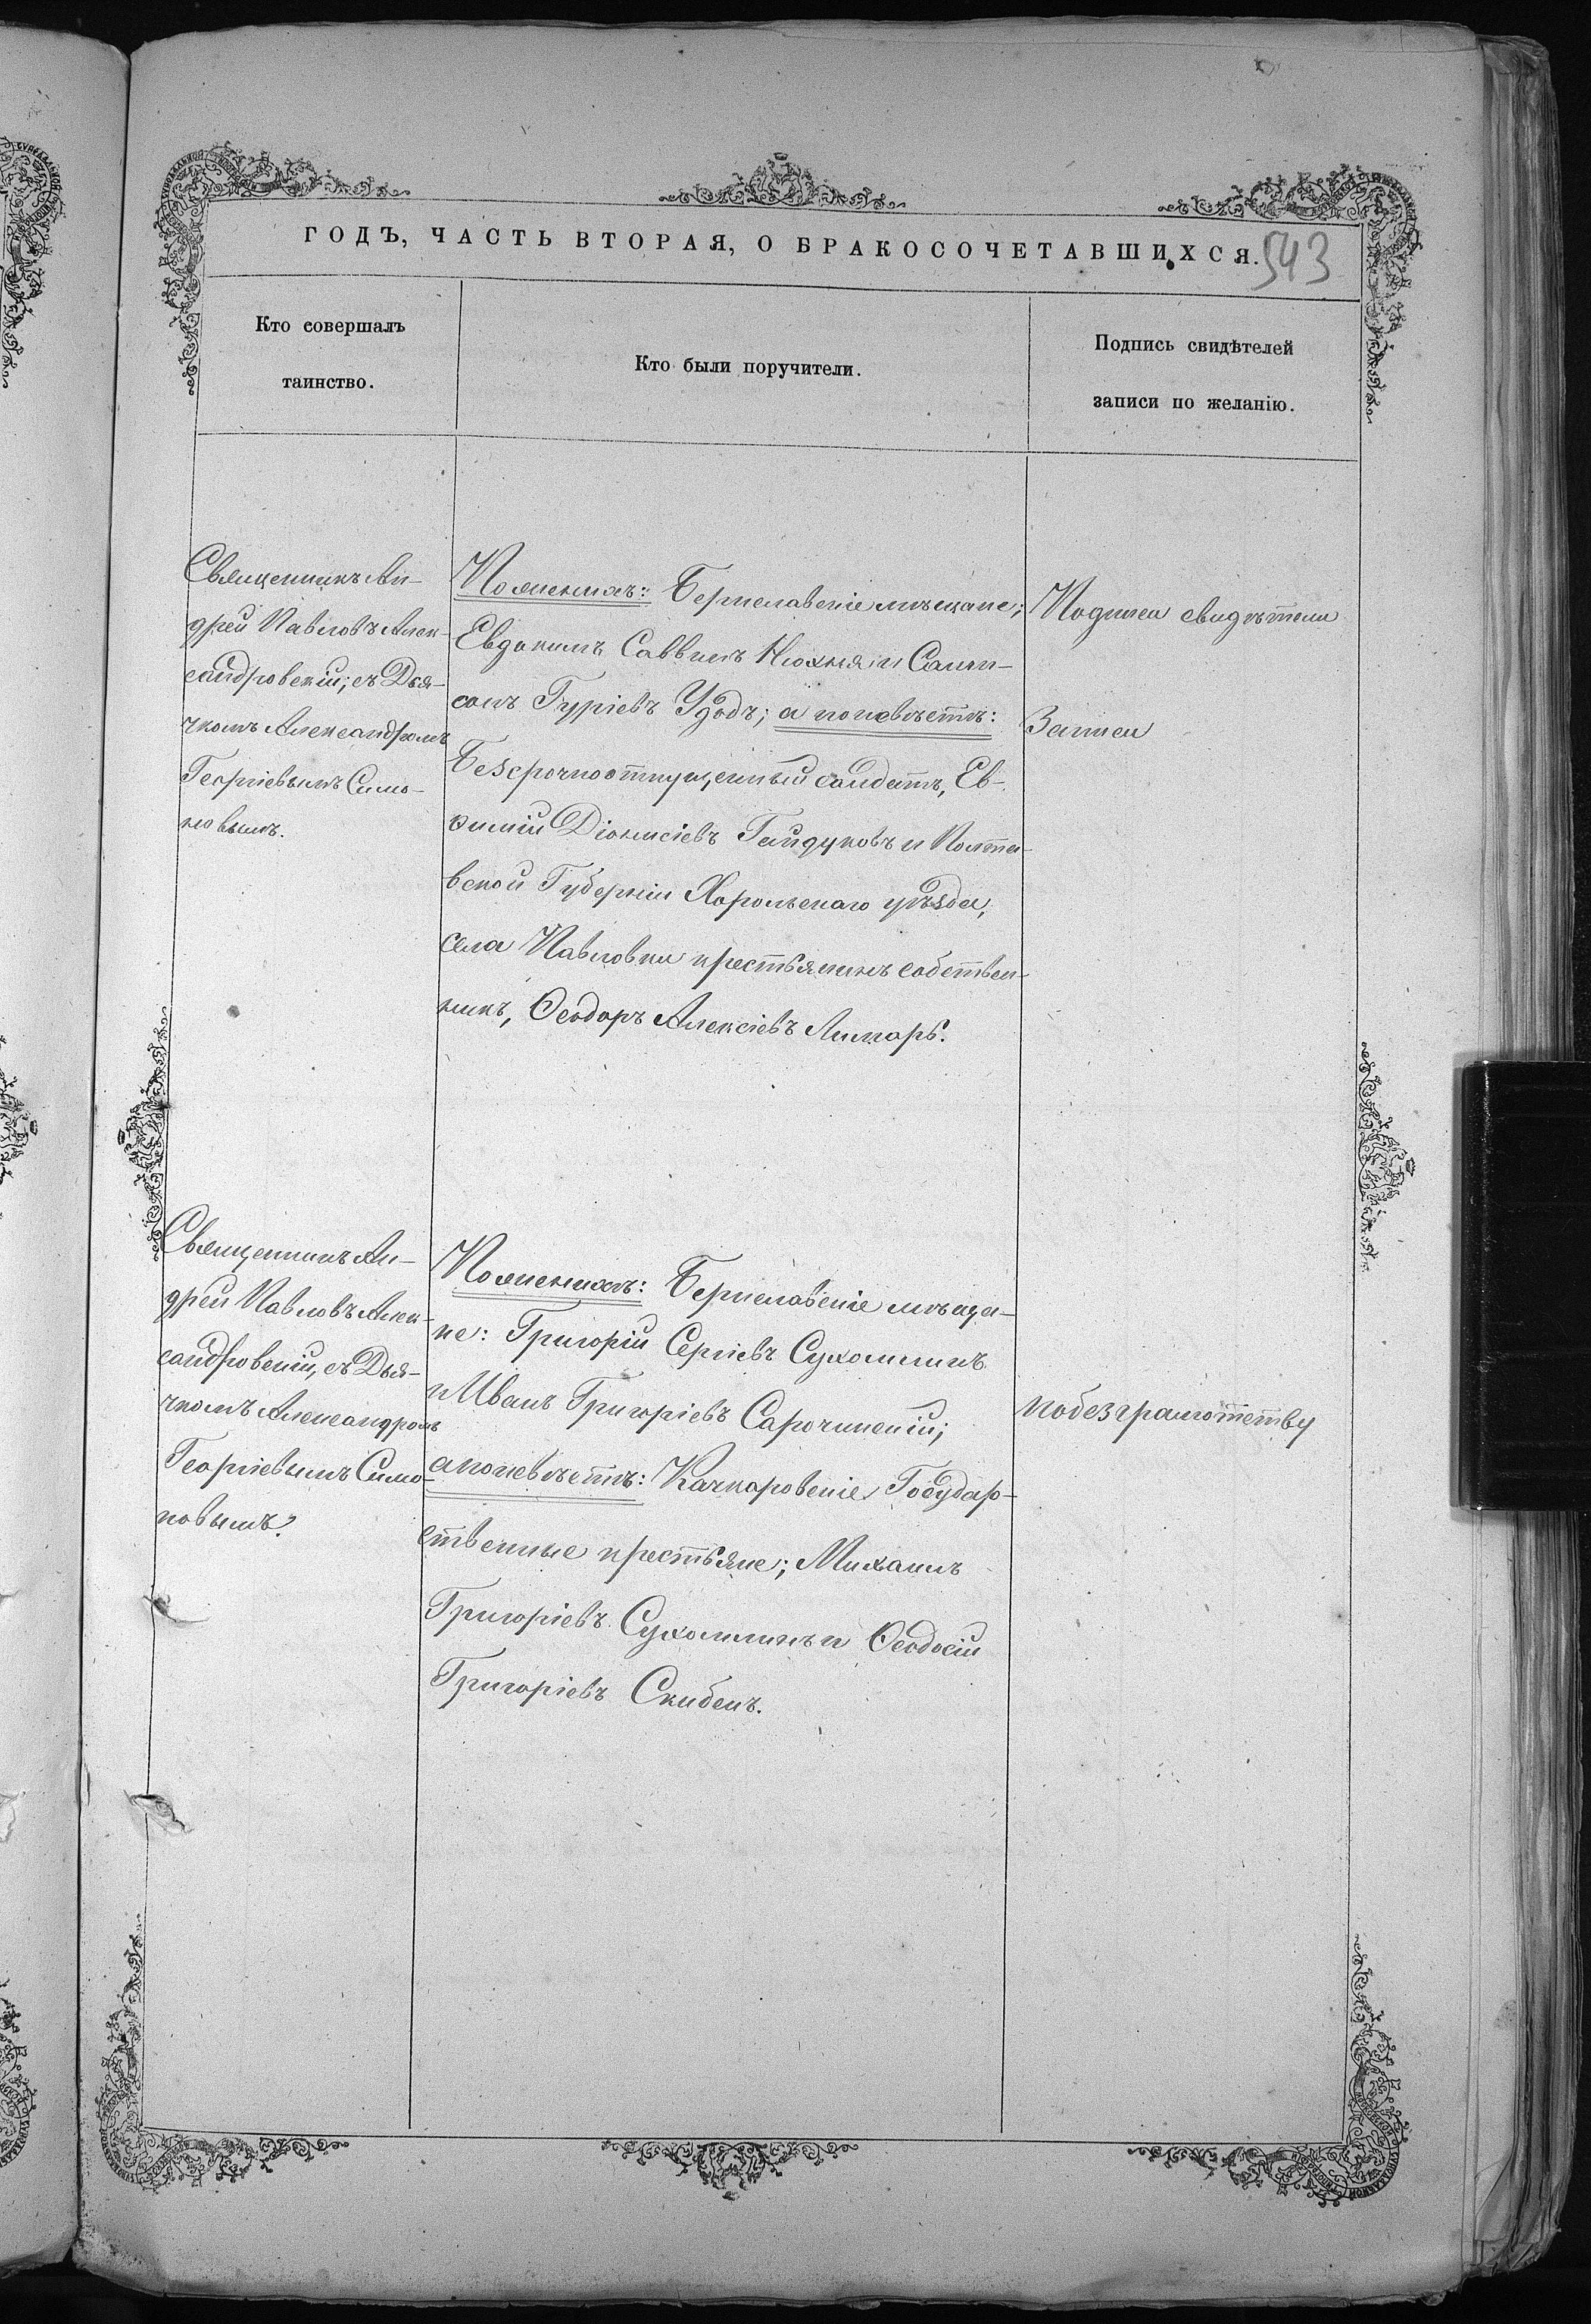 ГОДЪ, ЧАСТЬ ВТОРАЯ, О БРАКОСОЧЕТАВШИХСЯ.
543
Кто совершалъ
таинство.
Кто были поручители.
Подпись свидѣтелей
записи по желанію.
Священникъ Ан-
дрей Павловъ Алек-
сандровскій; съ Дья-
чкомъ Александромъ
Георгіевымъ Симо-
новымъ.
По женихѣ: Бериславскіе мѣщане;
Евдокимъ Саввинъ Нюхня и Самп-
сонъ Гуріевъ Удодъ; а по невѣстѣ:
Безсрочноотпущенный солдатъ, Ев-
фимій Діонисіевъ Гайдуковъ и Полта-
вской Губерніи Хорольскаго уѣзда,
села Павловки крестьянинъ собствен-
никъ, Ѳеодоръ Алексіевъ Лимарь.
Подписи свидѣтели
Записи
Священникъ Ан-
дрей Павловъ Алек-
сандровскій, съ Дья-
чкомъ Александромъ
Георгіевымъ Симо-
новымъ.
По женихѣ: Бериславскіе мѣща-
не: Григорій Сергіевъ Сухомлинъ
и Иванъ Григоріевъ Сарочинскій;
а по невѣстѣ: Качкаровскіе Государ-
ственные крестьяне; Михаилъ
Григоріевъ Сухомлинъ и Ѳеодосій
Григоріевъ Скибенъ.
по безграмотству